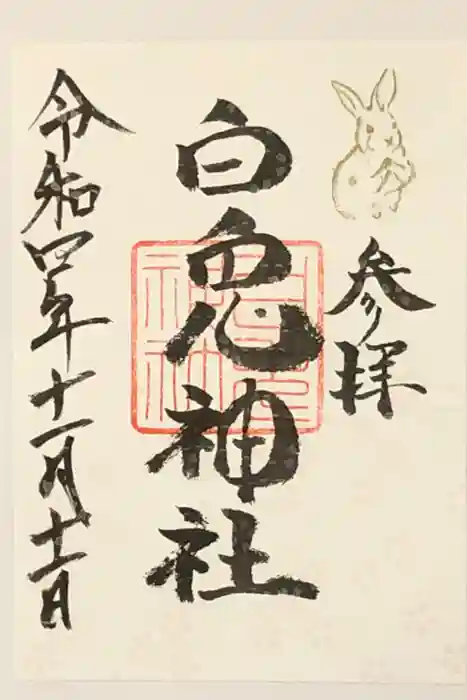 参拝
白兎神社
令和四年十一月十一日